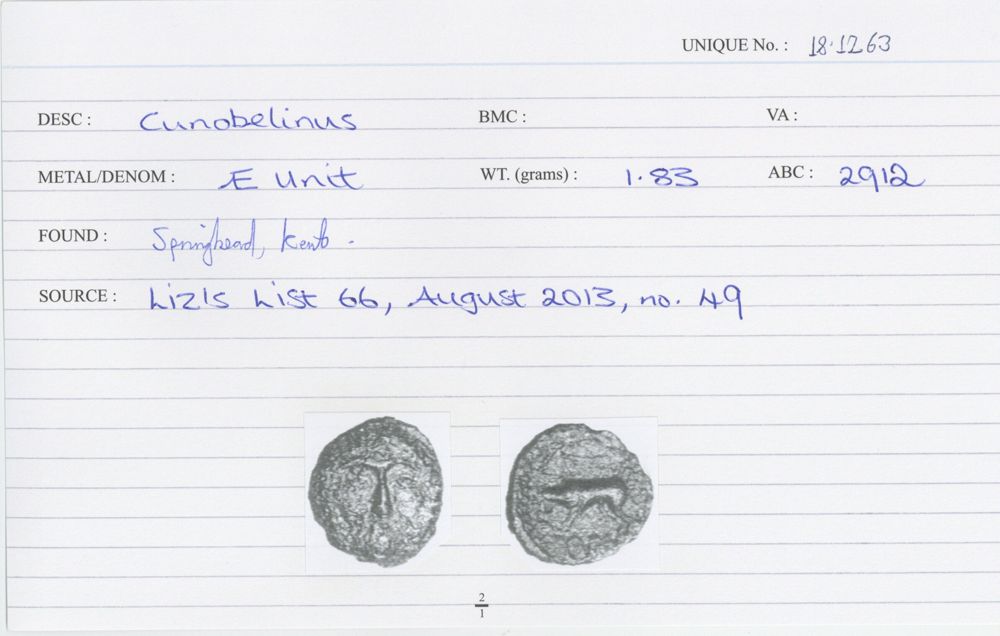 UNIQUE No. : 18.1263
DESC : Cunobelinus BMC : VA :
METAL/DENOM : Æ Unit WT. (grams) : 1.83 ABC : 2912
FOUND : Springhead, Kent.
SOURCE : Liz's List 66, August 2013, no. 49
2
1